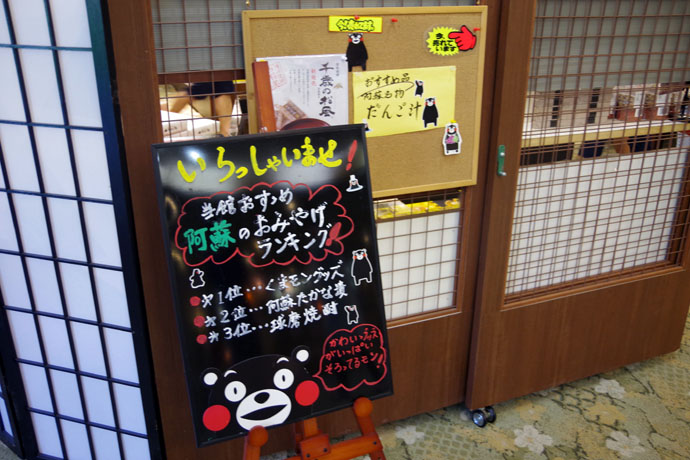 今、売れて
います
おすすめ品
阿蘇名物
だんご汁
いらっしゃいませ!
当館おすすめ
阿蘇のおみやげ
ランキング!!
第1位…くまモングッズ
第2位…阿蘇たかな漬
第3位…球磨焼酎
かわいいグッズ
がいっぱい
そろってるモン!